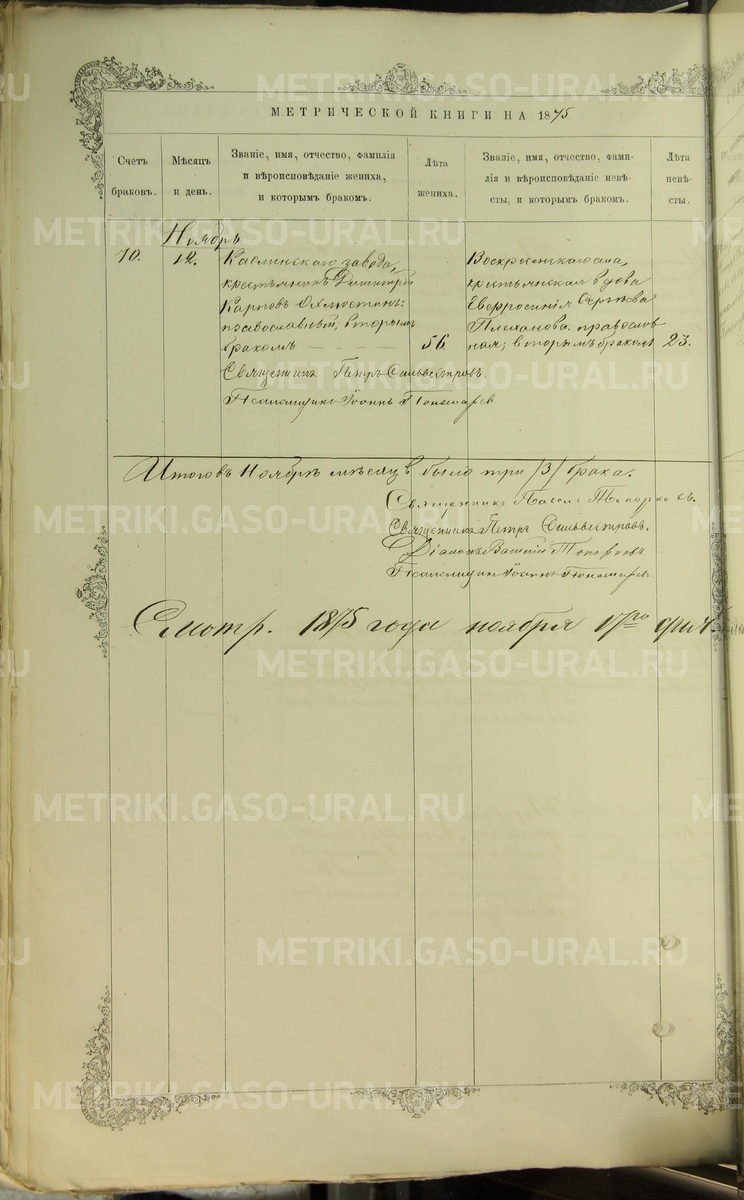 МЕТРИЧЕСКОЙ КНИГИ НА 1875
Счетъ браковъ.
Мѣсяцъ и день.
Званіе, имя, отчество, фамилія
и вѣроисповѣданіе жениха,
и которымъ бракомъ.
Лѣта жениха.
Званіе, имя, отчество, фами-
лія и вѣроисповѣданіе невѣ-
сты, и которымъ бракомъ.
Лѣта невѣ-
сты.
Ноябрь
10.
12.
Каслинскаго завода,
крестьянинъ Димитрій
Карповъ
православный, вторымъ
бракомъ
56.
Воскресенскаго села,
крестьянская вдова
Евфросинія Сергѣева
Плеханова. православ
ная; вторымъ бракомъ
23.
Священникъ Петръ Сильвестровъ.
Псаломщикъ Іоаннъ Пономаревъ
Итого въ Ноябрѣ мѣсяцѣ было три /3/ брака.
Священникъ Павелъ Топорковъ.
Священникъ Петръ Сильвестровъ.
Діаконъ Василій Топорковъ
Псаломщикъ Іоаннъ Пономаревъ
Смотр. 1875 года ноября 17го
METRIKI.GASO-URAL.RU